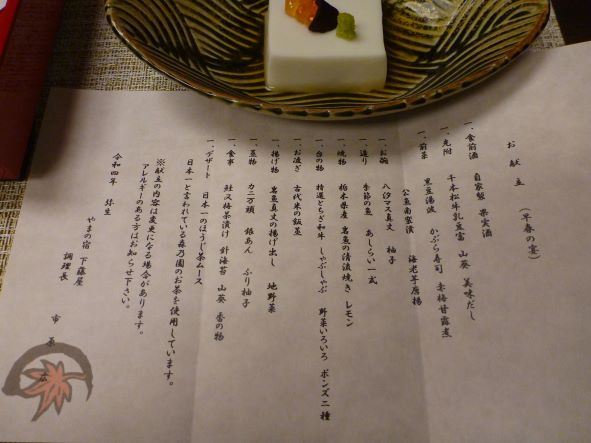 お献立 (早春の宴)
一、食前酒 自家製 果実酒
一、先附 千本松牛乳豆富 山葵 美味だし
一、前菜 黒豆湯波 かぶら寿司 赤梅甘露煮
公魚南蛮漬 海老芋唐揚
一、お碗 八汐マス真丈 柚子
一、造り 季節の魚 あしらい一式
一、焼物 栃木県産 岩魚の清流焼き レモン
一、台の物 特選とちぎ和牛 しゃぶしゃぶ 野菜いろいろ ポンズ二種
一、お凌ぎ 古代米の飯蒸
一、揚げ物 岩魚真丈の揚げ出し 地野菜
一、蒸物 カニ万頭 銀あん ふり柚子
一、食事 鮭又梅茶漬け 針海苔 山葵 香の物
一、デザート 日本一のほうじ茶ムース
日本一と言われている森乃園のお茶を使用しています。
※献立の内容は変更になる場合があります。
アレルギーのある方はお知らせ下さい。
令和四年 弥生
やまの宿 下藤屋
調理長 市原 広